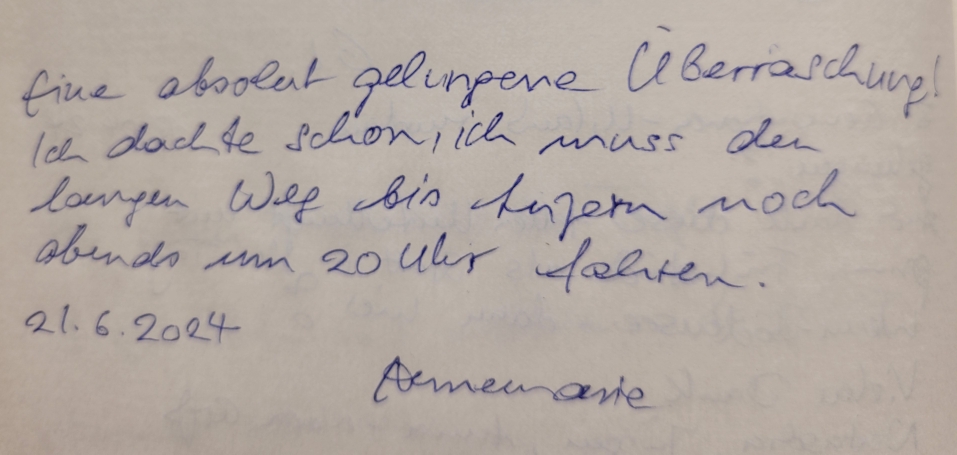 Eine absolut gelungene Überraschung!
Ich dachte schon, ich muss den
langen Weg bis Luzern noch
abends um 20 Uhr fahren.
21.6.2024
Annemarie